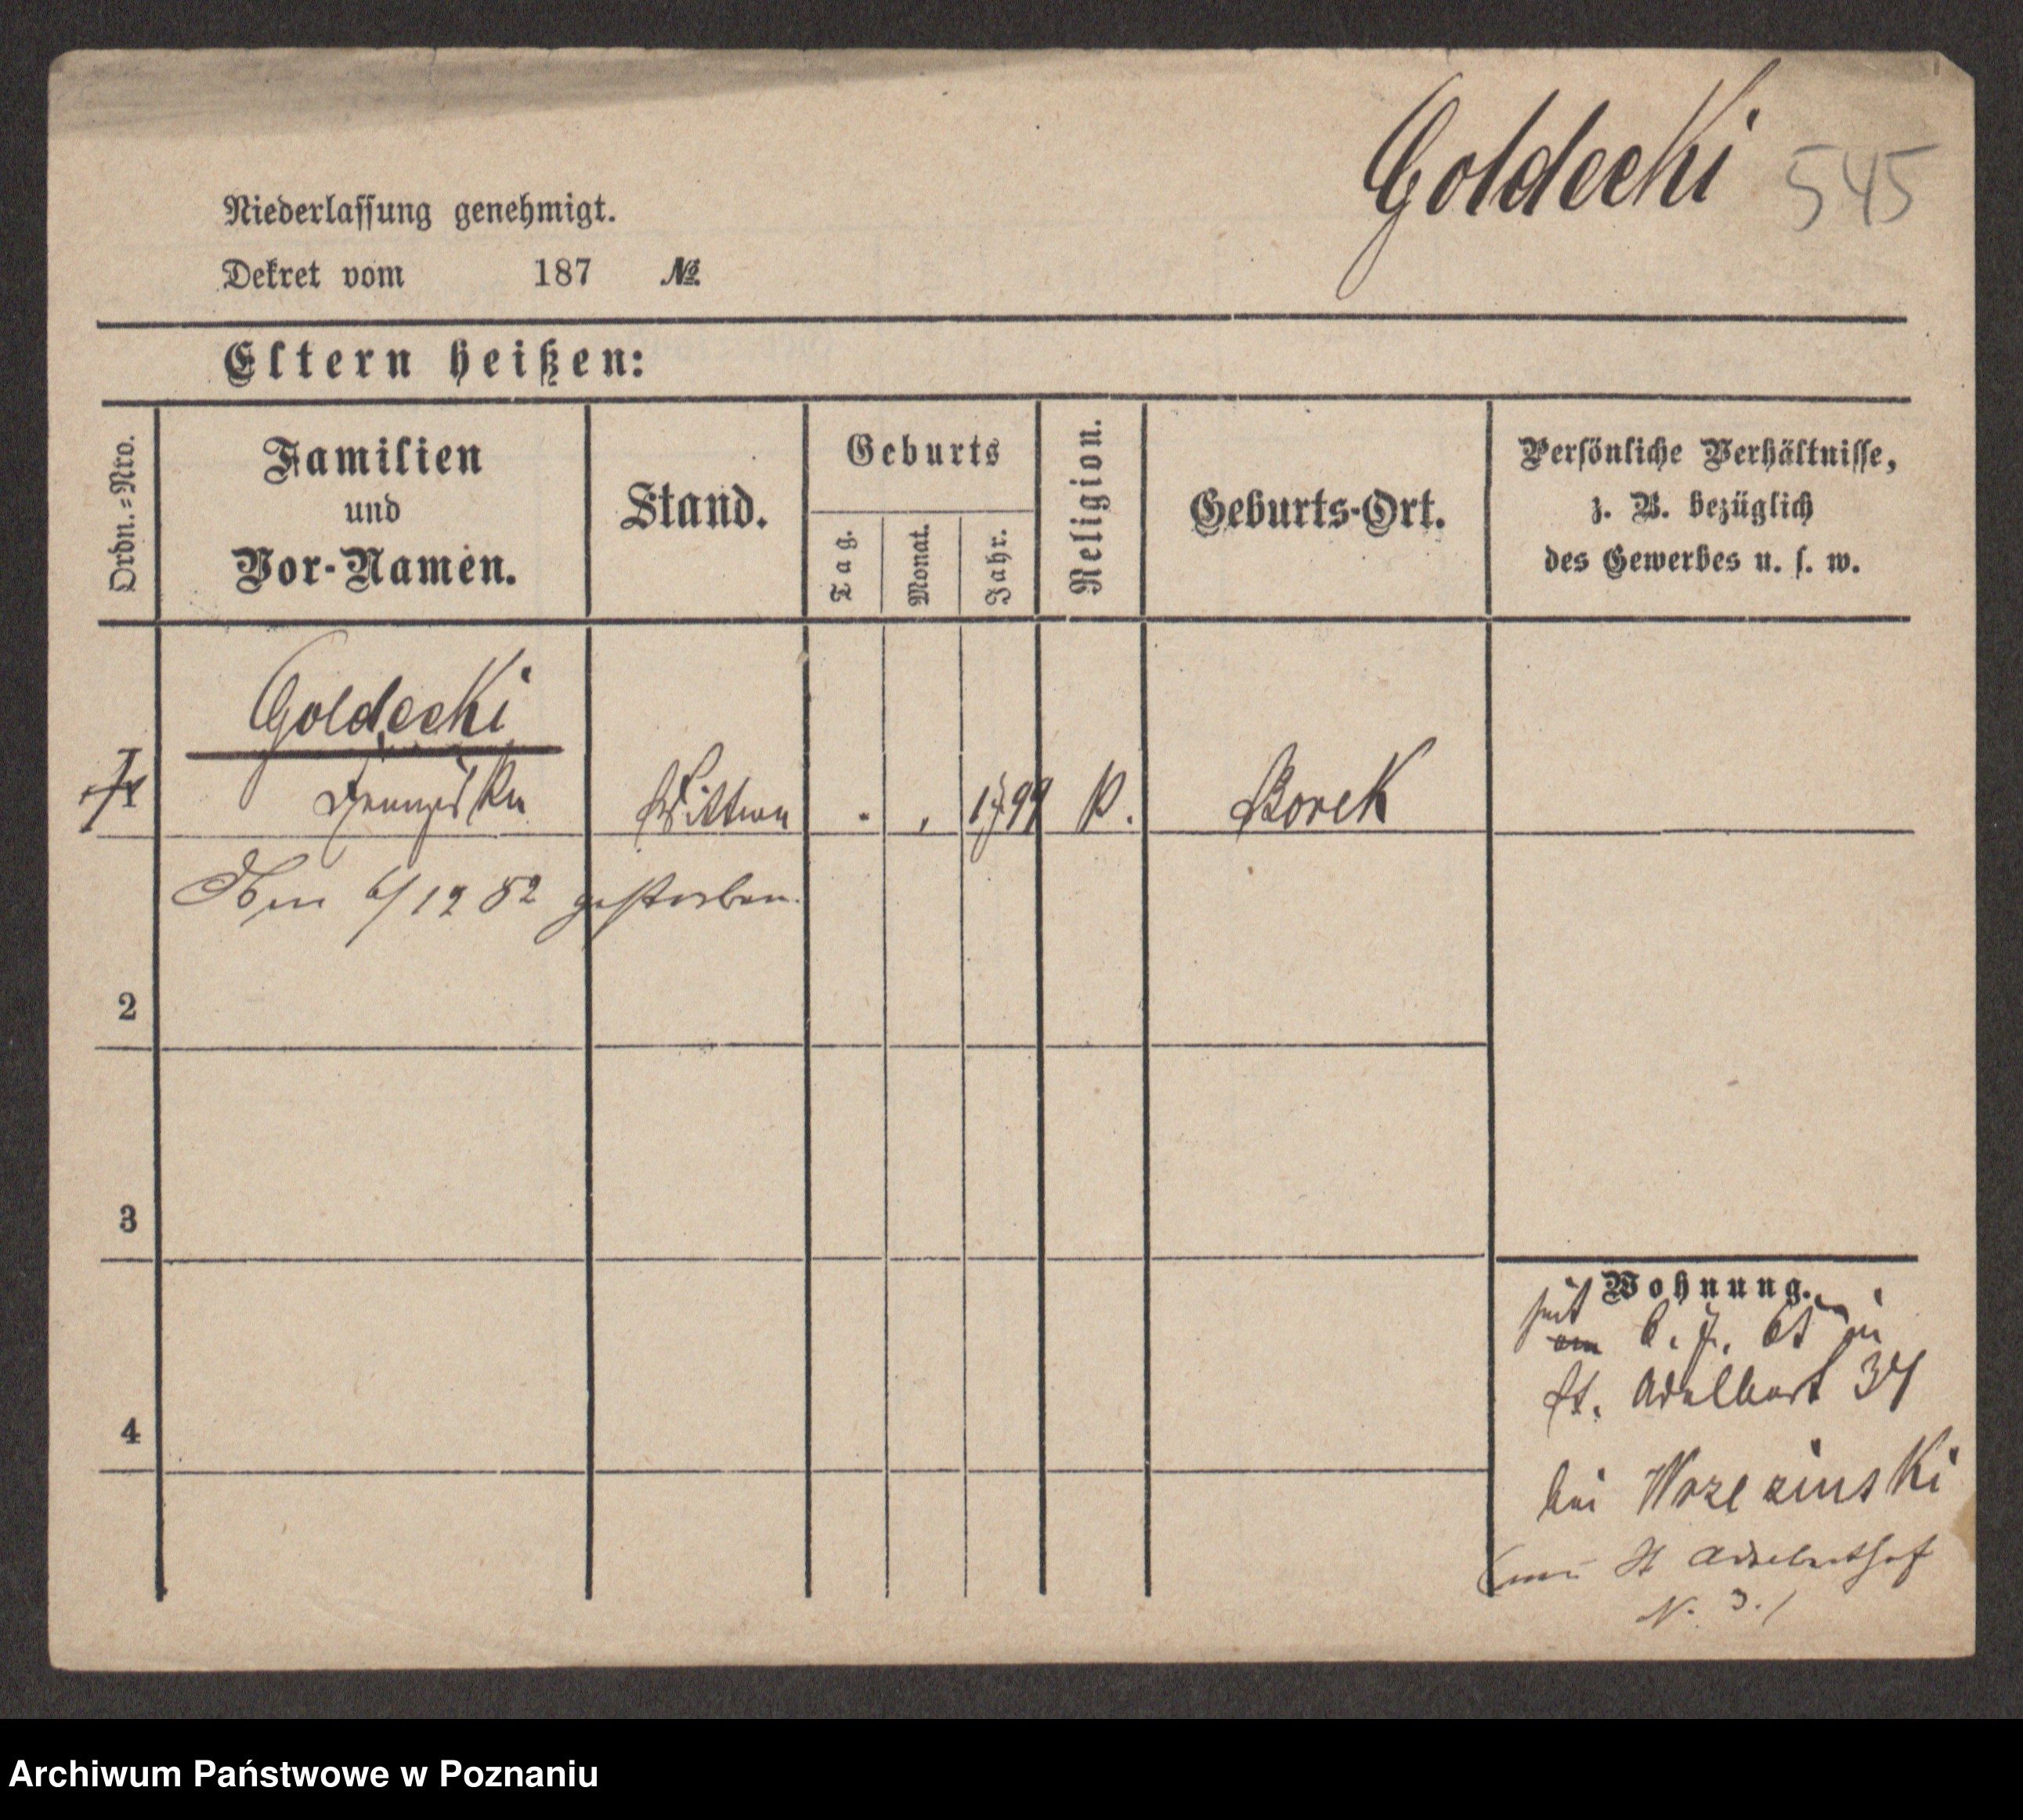 Goldecki 545
Niederlassung genehmigt.
Dekret vom 187 №
Eltern heißen:
Ordn.=Nro.
Familien
und
Vor-Namen.
Stand.
Geburts
Tag.
Monat.
Jahr.
Religion.
Geburts-Ort.
Persönliche Verhältnisse,
z. B. bezüglich
des Gewerbes u. s. w.
Goldecki
1 Franziska Wittwe . . 1799 k. Borek
Am 6/12 82 gestorben.
2
3
4
Wohnung.
seit
am 6. 7. 65 in
St. Adalbert 34
bei Wrzezinski
St Adalberthof
N. 3.)
Archiwum Państwowe w Poznaniu